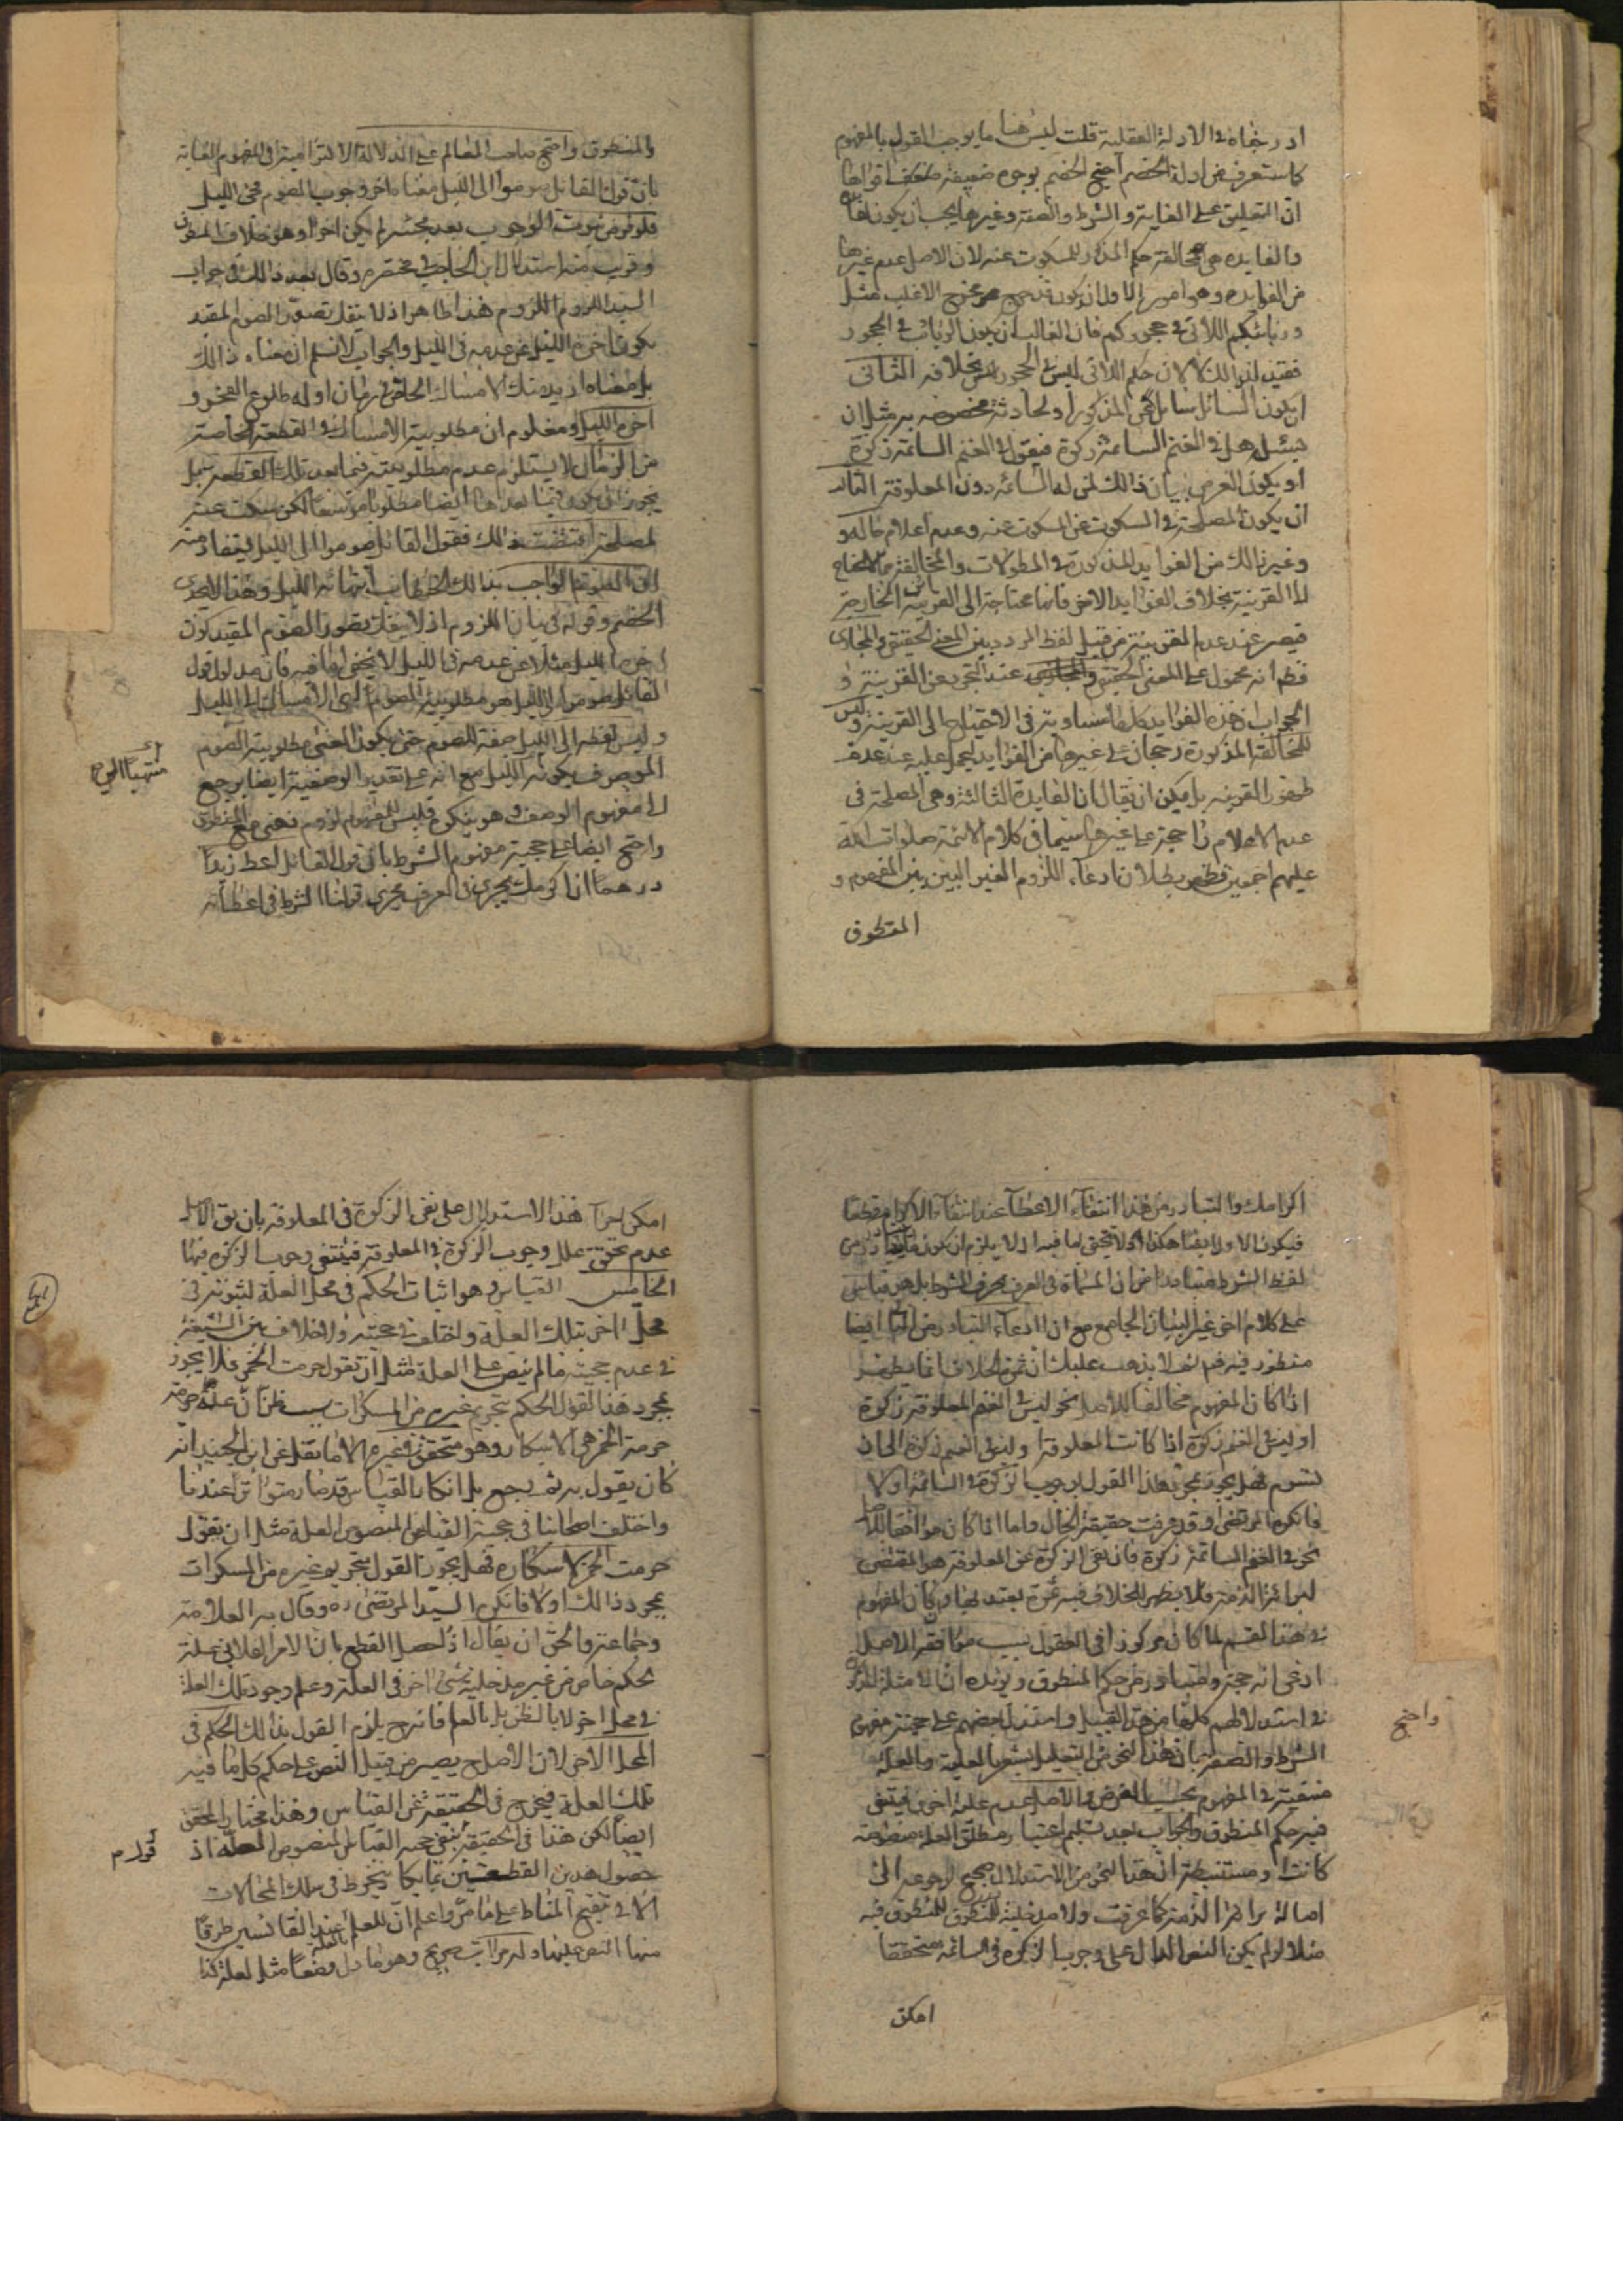 ادرجناه في الادلة العقلية قلت ليس هنا ما يوجب القول بالمفهوم
كما ستعرف من ادلة الخصم احتج الخصم بوجوه ضعيفة اقواها
ان التعليق على الغاية والشرط والصفة وغيرها يجب ان يكون لفائدة
والفايدة هي مخالفة حكم المذكور للمسكوت عنه لان الاصل عدم غيرها
من الفوايد وهو امور الاول ان يكون قد خرج مخرج الاغلب مثل
وربائبكم اللاتي في حجوركم فان الغالب ان يكون الربائب في الحجور
فقيد لذالك لا لان حكم اللاتي ليس في الحجور بخلافه الثاني
ان يكون السائل سائل عن المذكور او لحادثة مخصوصه به مثل ان
يسئل هل في الغنم السائمة زكوة فيقول في الغنم السائمة زكوة
او يكون الغرض بيان ذالك لمن له السائمه دون المعلوفة الثالث
ان يكون المصلحة في السكوت عن المسكوت عنه وعدم اعلام حاله و
وغير ذالك من الفوايد المذكورة في المطولات والمخالفة مما لا يحتاج
الى القرينة بخلاف الفوايد الاخر فانها محتاجة الى القرينة الخارجة
فيصير عند عدم القرينة من قبيل لفظ المردد بين المعنى الحقيقي والمجازى
فظ انه محمول على المعنى الحقيقي عند التجرد عن القرينة و
الجواب ان هذه الفوايد كلها متساوية في الاحتياج الى القرينة وليس
للمخالفة المذكورة رجحان على غيرها من الفوايد ليحمل عليه عند عدم
ظهور القرينه بل يمكن ان يقال ان الفايدة الثالثة وهي المصلحة في
عدم الاعلام راجحة على غيرها سيما في كلام الائمة صلوات الله
عليهم اجمعين فظهر بطلان ادعاء اللزوم الغير البين بين المفهوم و
المنطوق
والمنطوق واحتج صاحب المعالم على الدلالة الالتزامية في المفهوم الغاية
بان قول القائل صوموا الى الليل معناه اخر وجوب الصوم مجئ الليل
فلو فرض ثبوت الوجوب بعد مجيئه لم يكن اخرا وهو خلاف المنطوق
وقريب منه استدلال ابن الحاجب في مختصره وقال بعد ذالك في جواب
السيد اللزوم اللزوم هنا ظاهر اذ لا ينفك تصور الصوم المقيد
بكون اخره الليل عن عدمه في الليل والجواب لا نسلم ان معناه ذالك
بل معناه اريد منك الامساك الخاص في زمان اوله طلوع الفجر و
اخره الليل ومعلوم ان مطلوبية الامساك في القطعة الخاصة
من الزمان لا يستلزم عدم مطلوبيته فيما بعد تلك القطعه بل
يجوز ان يكون فيما بعدها ايضا مطلوبا لكن سكت عنه
لمصلحة اقتضت ذالك فقول القائل صوموا الى الليل يستفاد منه
ان الصوم الواجب بذالك الخطاب انتهائه الليل وهذا لا يجدى
الخصم وقوله في بيان اللزوم اذ لا ينفك تصور الصوم المقيد بكون
اخره الليل مثلا عن عدمه في الليل لا يخفى ما فيه فان مدلول قول
القائل صوموا الى الليل هو مطلوبية الصوم اى الامساك الى الليل
وليس لفظه الى الليل صفة للصوم حتى يكون المعنى مطلوبية الصوم
الموصوف بكونه الى الليل مع انه على تقدير الوصفية ايضا يرجع
الى مفهوم الوصف وهو ينكره فليس للمفهوم لزوم ذهني مع المنطوق
واحتج ايضا على حجية مفهوم الشرط بان قول القائل اعط زيدا
درهما ان اكرمك يجري في العرف مجرى قولنا الشرط في اعطائه
اكرامك والمتبادر من هذا انتفاء الاعطاء عند انتفاء الاكرام قطعا
فيكون الاول ايضا هكذا ولا يخفى ما فيه اذ لا يلزم ان يكون
لفظ الشرط متبادرا من ان المسماة في العرف بحرف الشرط بل هو قياس
على كلام اخر غير البيان الجامع مع ان ادعاء التبادر من ايضا
منظور فيه ثم لا يذهب عليك ان ثمرة الخلاف انما يظهر
اذا كان المفهوم مخالفا للاصل نحو ليس في الغنم المعلوفة زكوة
او ليس في الغنم زكوة اذا كانت المعلوفة او ليس في الغنم زكوة الى ان
تسوم فهل يجوز بمجرد هذا القول بوجوب الزكوة في السائمة او لا
فانكره المرتضى وقد عرفت حقيقة الحال واما اذا كان موافقا للاصل
نحو في الغنم السائمة زكوة فان نفى الزكوة عن المعلوفة هو المقتضى
لبرائة الذمة فلا يظهر للخلاف فيه ثمرة يعتد بها وكان المفهوم
في هذا القسم لما كان مركوزا في العقول بسبب موافقة الاصل
ادعى انه حجة ومتبادر من حكم المنطوق ويؤيده ان الامثلة المذكورة
في استدلالهم كلها من هذا القبيل واستدل بعضهم على حجية مفهوم
الشرط والصفة بان هذا النحو من التعليل يشعر بالعلية والعلة
منفية في المفهوم بحسب الفرض والاصل عدم علة اخرى فينتفى
فيه حكم المنطوق والجواب بعد تسليم اعتبار مطلق العلة منصوصة
كانت او مستنبطة ان هذا النحو من الاستدلال صحيح لرجوعه الى
اصالة برائة الذمة كما عرفت ولا مدخلية للمنطوق فيه
مثلا لو لم يكن النص الدال على وجوب الزكوة في السائمة متحققا
امكن
امكن اجراء هذا الاستدلال على نفى الزكوة في المعلوفة بان يق الاصل
عدم تحقق علل وجوب الزكوة في المعلوفة فينتفى وجوب الزكوة فيها
الخامس القياس وهو اثبات الحكم في محل العلة لثبوته في
محل اخر بتلك العلة واختلف في حجيته ولا خلاف بين الشيعة
في عدم حجية ما لم ينص على العلة مثل ان تقول حرمت الخمر فلا يجوز
بمجرد هذا القول الحكم بتحريم غيره من المسكرات بسبب ظن ان علة
حرمة الخمر هي الاسكار وهو متحقق في غيره الا ما نقل عن ابن الجنيد انه
كان يقول به ثم رجع بل انكار القياس قد صار متواترا عندنا
واختلف اصحابنا في حجية القياس المنصوص العلة مثل ان تقول
حرمت الخمر لاسكاره فهل يجوز القول بتحريم غيره من المسكرات
بمجرد ذالك او لا فانكره السيد المرتضى ره وقال به العلامة
وجماعة والحق ان يقال اذا حصل القطع بان الامر الفلاني علة
لحكم خاص من غير مدخلية شئ اخر في العلة وعلم وجود تلك العلة
في محل اخر لا بالظن بل بالعلم فانه ح يلزم القول بذالك الحكم في
المحل الاخر لان الاصل ح يصير من قبيل النص على حكم كل ما فيه
تلك العلة فيخرج في الحقيقة عن القياس وهذا مختار المحقق
ايضا لكن هذا في الحقيقة نفى حجية القياس المنصوص العلة اذ
حصول هذين القطعين مما يكاد ينخرط في سلك المحالات
الا في تنقيح المناط على ما مر واعلم ان للعلم بالعلة عند القائسين طرقا
منها النص عليها وله مراتب صريح وهو ما دل وضعا مثل لعلة كذا